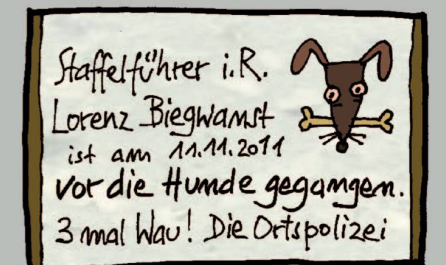 Staffelführer i.R.
Lorenz Biegwanst
ist am 11.11.2011
vor die Hunde gegangen.
3 mal Wau! Die Ortspolizei